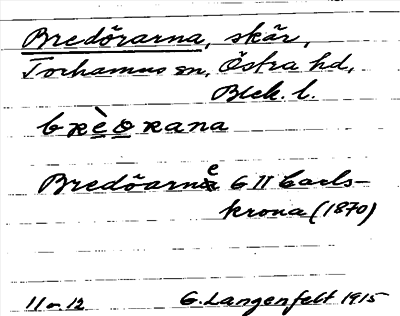 Bredörarna, skär,
Torhamns sn, Östra hd,
Blek. l.
brèörana
Bredöarne G II Carls-
krona (1870)
11 o. 12 G. Langenfelt 1915